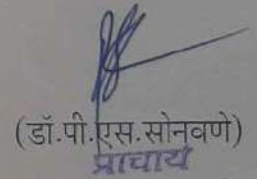 (डॉ.पी.एस.सोनवणे)
प्राचार्य